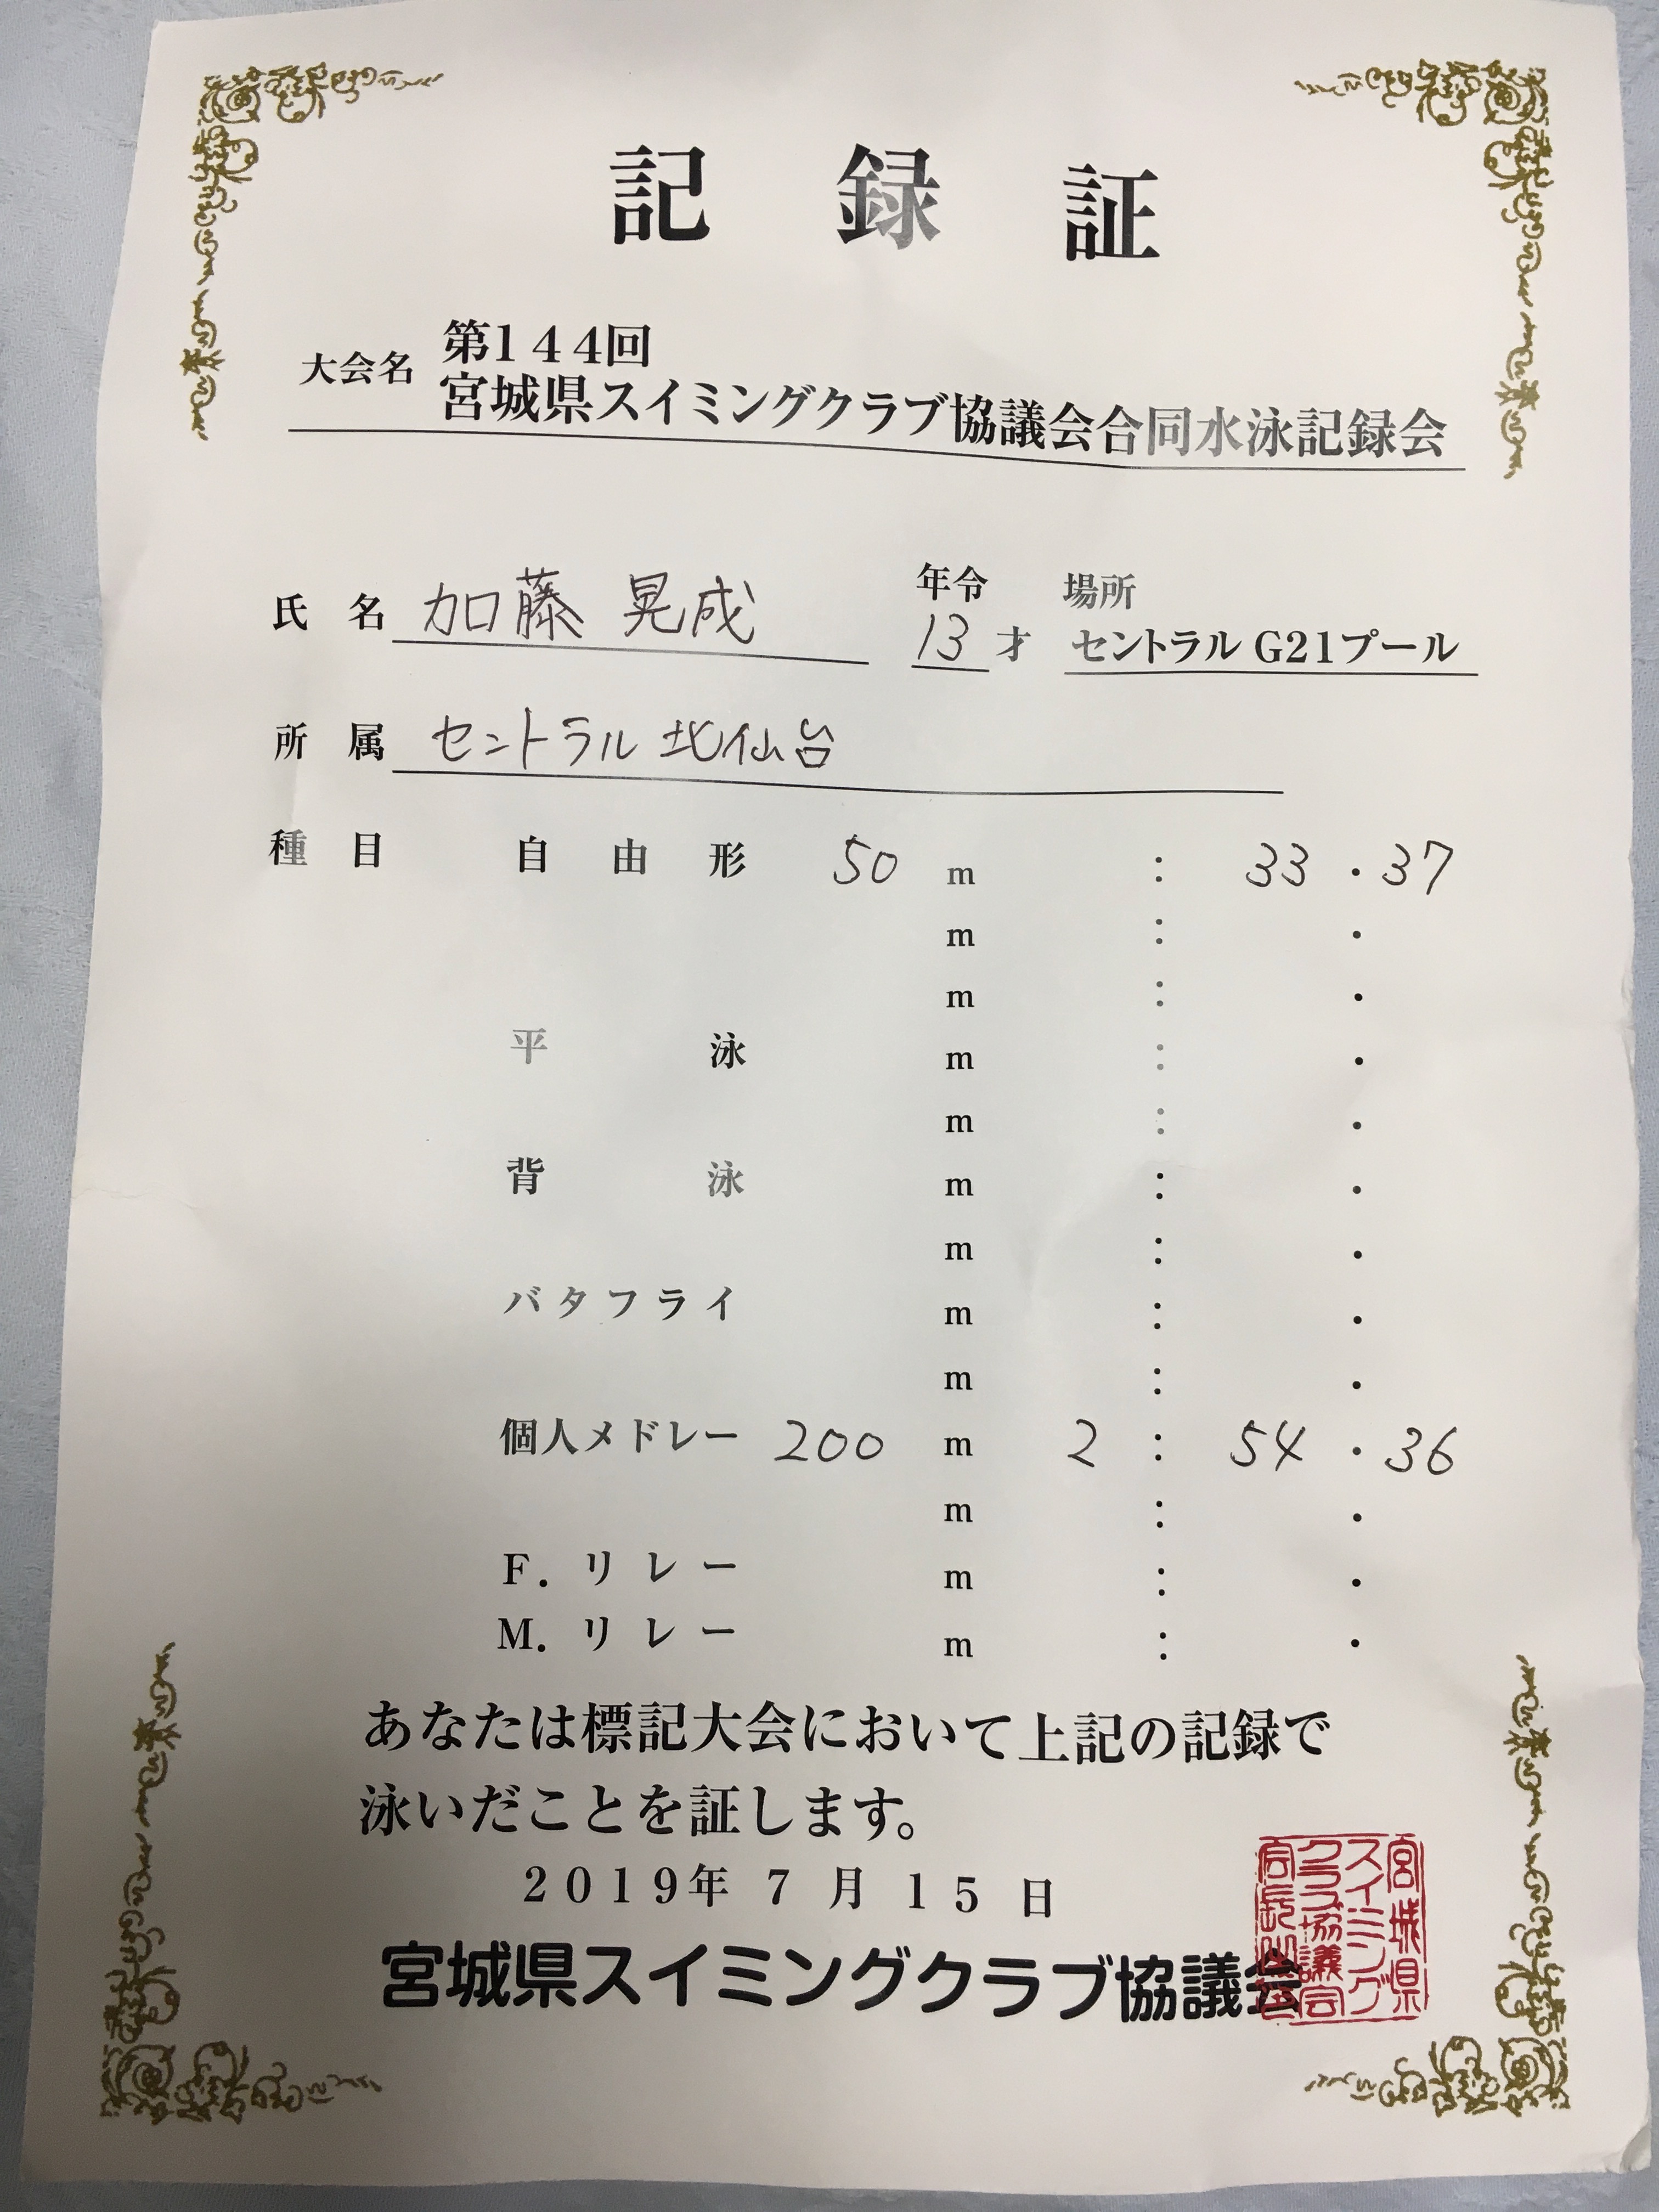 記録証
大会名
第144回
宮城県スイミングクラブ協議会合同水泳記録会
氏名 加藤 晃成 年令 13才 場所 セントラルG21プール
所属 セントラル 北仙台
種目 自由形 50 m : 33 . 37
m : .
m : .
平泳 m : .
m : .
背泳 m : .
m : .
バタフライ m : .
m : .
個人メドレー 200 m 2 : 54 . 36
m : .
F. リレー m : .
M. リレー m : .
あなたは標記大会において上記の記録で
泳いだことを証します。
2019年 7月 15日
宮城県スイミングクラブ協議会
宮城県
スイミング
クラブ協議会